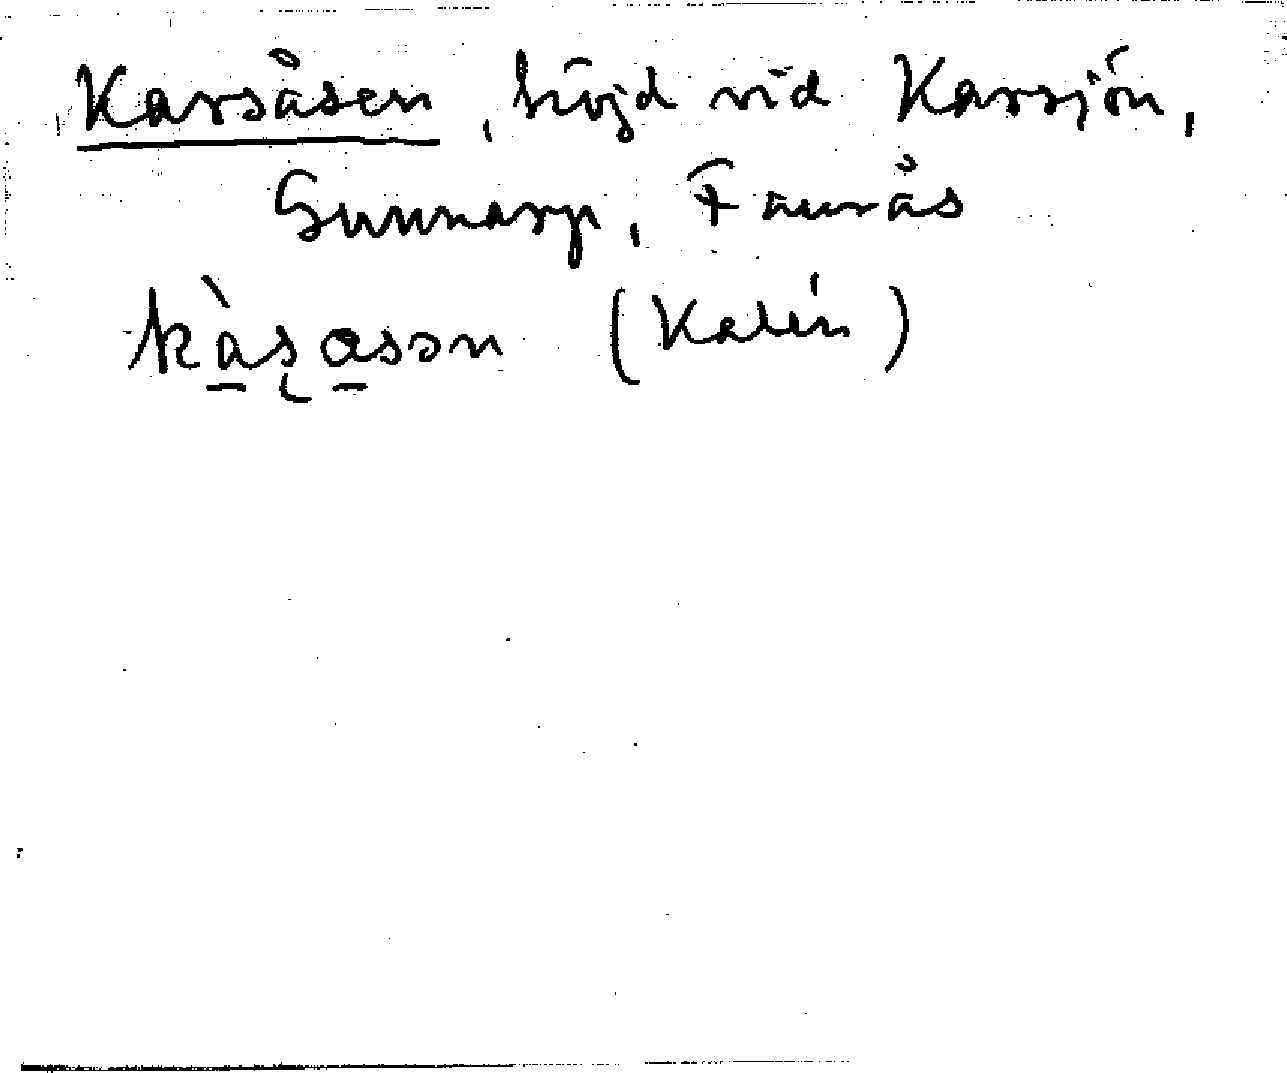 Karsåsen, höjd vid Karsjön,
Gunnarp, Faurås
kàs̨ asən (Kalén)